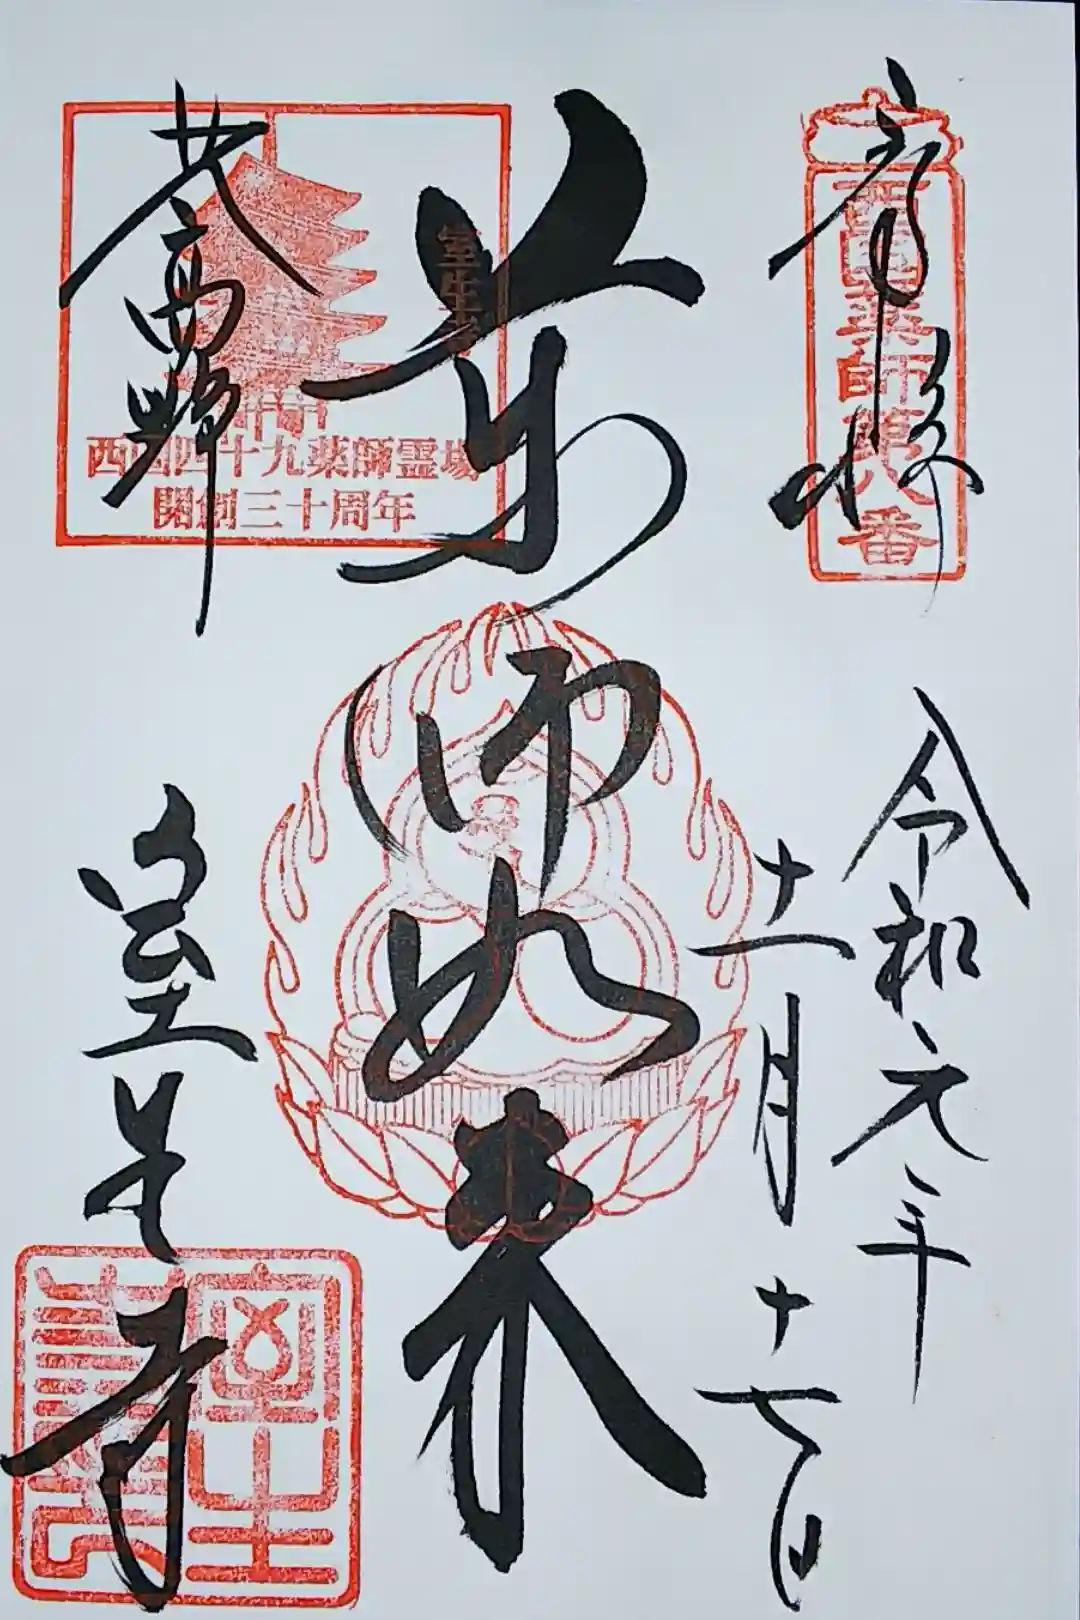 奉拝
西国薬師第八番
令和元年
十一月十七日
薬師如来
女人高野
室生寺
西国四十九薬師霊場
開創三十周年
室生寺